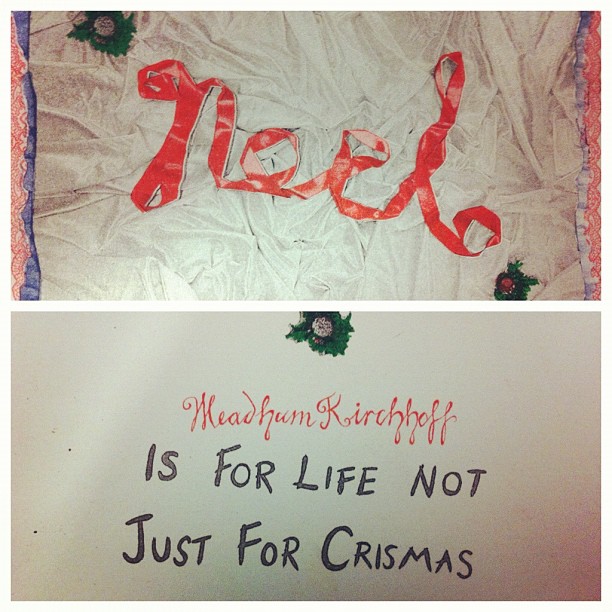 Noel
Meadham Kirchhoff
IS FOR LIFE NOT
JUST FOR CRISMAS